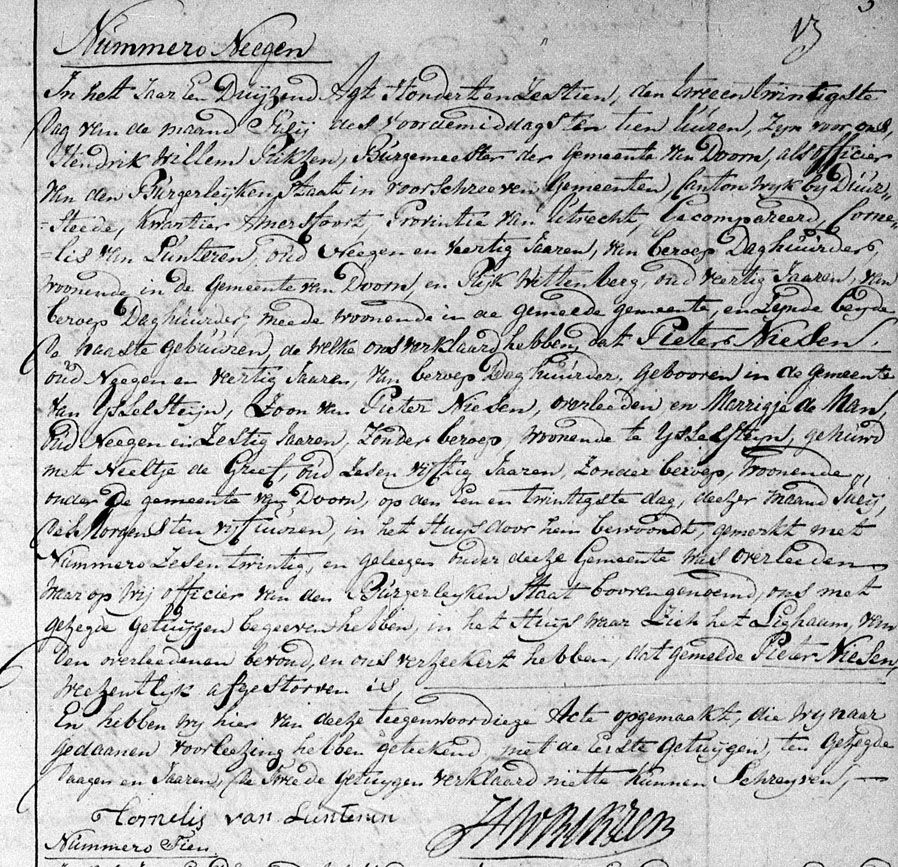 13
Nummero Neegen
In het Jaar Een Duijzend Agt Hondert en Zestien, den twee en twintigste
dag van de maand Julij des voordemiddags ten tien uuren, Zijn voor ons,
Hendrik Willem, Burgemeester der Gemeente van Doorn, als officier
van den Burgerleijken Staat in voorschreeven Gemeenten, Canton Wijk bij Duur-
=steede, kwartier Amersfoort Provintie van Utrecht, Gecompareerd, Corne=
=lis van Lunteren, oud Neegen en veertig Jaaren, van beroep Daghuurder,
woonende in de Gemeente van Doorn, en Rijk Wittenberg, oud veertig Jaaren, van
beroep Daghuurder, meede woonende in de gemelde gemeente, en Zijnde beijde
de naaste gebuuren, de welke ons verklaard hebben, dat Pieter Niesen,
oud Neegen en veertig Jaaren, van beroep Daghuurder, gebooren in de gemeente
van IJsselsteijn, Zoon van Pieter Niesen, overleeden en Marrigje de Man,
oud Neegen en Zestig Jaaren, Zonder beroep, woonende te IJsselsteijn, gehuwd
met Neeltje de Greef, oud Zes en vijftig Jaaren, Zonder beroep, woonende
onder de gemeente van Doorn, op den Een en twintigste dag, deezer maand Julij,
des Morgens ten vijf uuren, in het Huijs door hem bewoondt, gemerkt met
Nummero Zes en twintig, en geleegen onder deeze Gemeente was overleeden
waar op Wij officier van den Burgerleijken Staat bovengenoemd, ons met
gezegde getuijgen begeeven hebben, in het Huijs waar Zich het Lighaam, van
den overleedenen bevond, en ons verzeekert hebben, dat gemelde Pieter Niesen,
weezentlijk afgestorven is,
En hebben wij hier van deeze teegenwoordige Acte opgemaakt, die wij naar
gedaanen voorleezing hebben geteekend, met de Eerste Getuijgen, ten gezegde
daagen en Jaaren, de tweede Getuijgen verklaard niet te kunnen Schreijven,
Cornelis van Lunteren
Nummero Tien